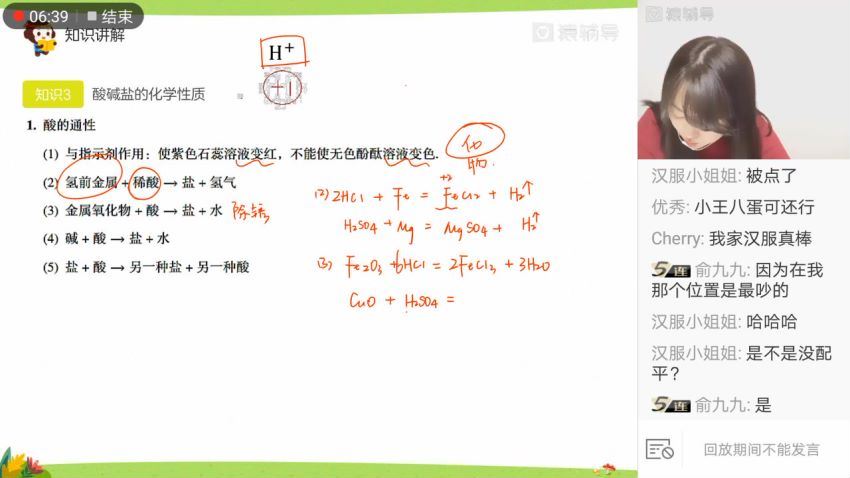 06:39 结束
知识讲解
猿辅导
猿辅导
H⁺
+1
知识3 酸碱盐的化学性质
1. 酸的通性
(1) 与指示剂作用：使紫色石蕊溶液变红，不能使无色酚酞溶液变色.
(2) 氢前金属 + 稀酸 → 盐 + 氢气
(3) 金属氧化物 + 酸 → 盐 + 水 除锈
(4) 碱 + 酸 → 盐 + 水
(5) 盐 + 酸 → 另一种盐 + 另一种酸
+2
(2) 2HCl + Fe = FeCl2 + H2↑
H2SO4 + Mg = MgSO4 + H2↑
(3) Fe2O3 + 6HCl = 2FeCl3 + 3H2O
CuO + H2SO4 =
汉服小姐姐: 被点了
优秀: 小王八蛋可还行
Cherry: 我家汉服真棒
5连 俞九九: 因为在我
那个位置是最吵的
汉服小姐姐: 哈哈哈
汉服小姐姐: 是不是没配
平？
5连 俞九九: 是
回放期间不能发言